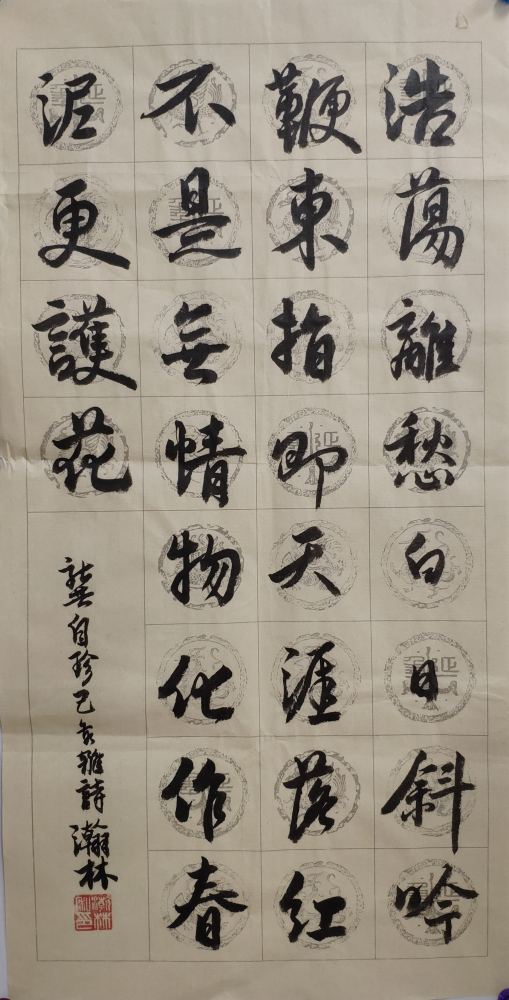 浩蕩離愁白日斜吟
鞭東指即天涯落紅
不是無情物化作春
泥更護花
龔自珍己亥雜詩 瀚林